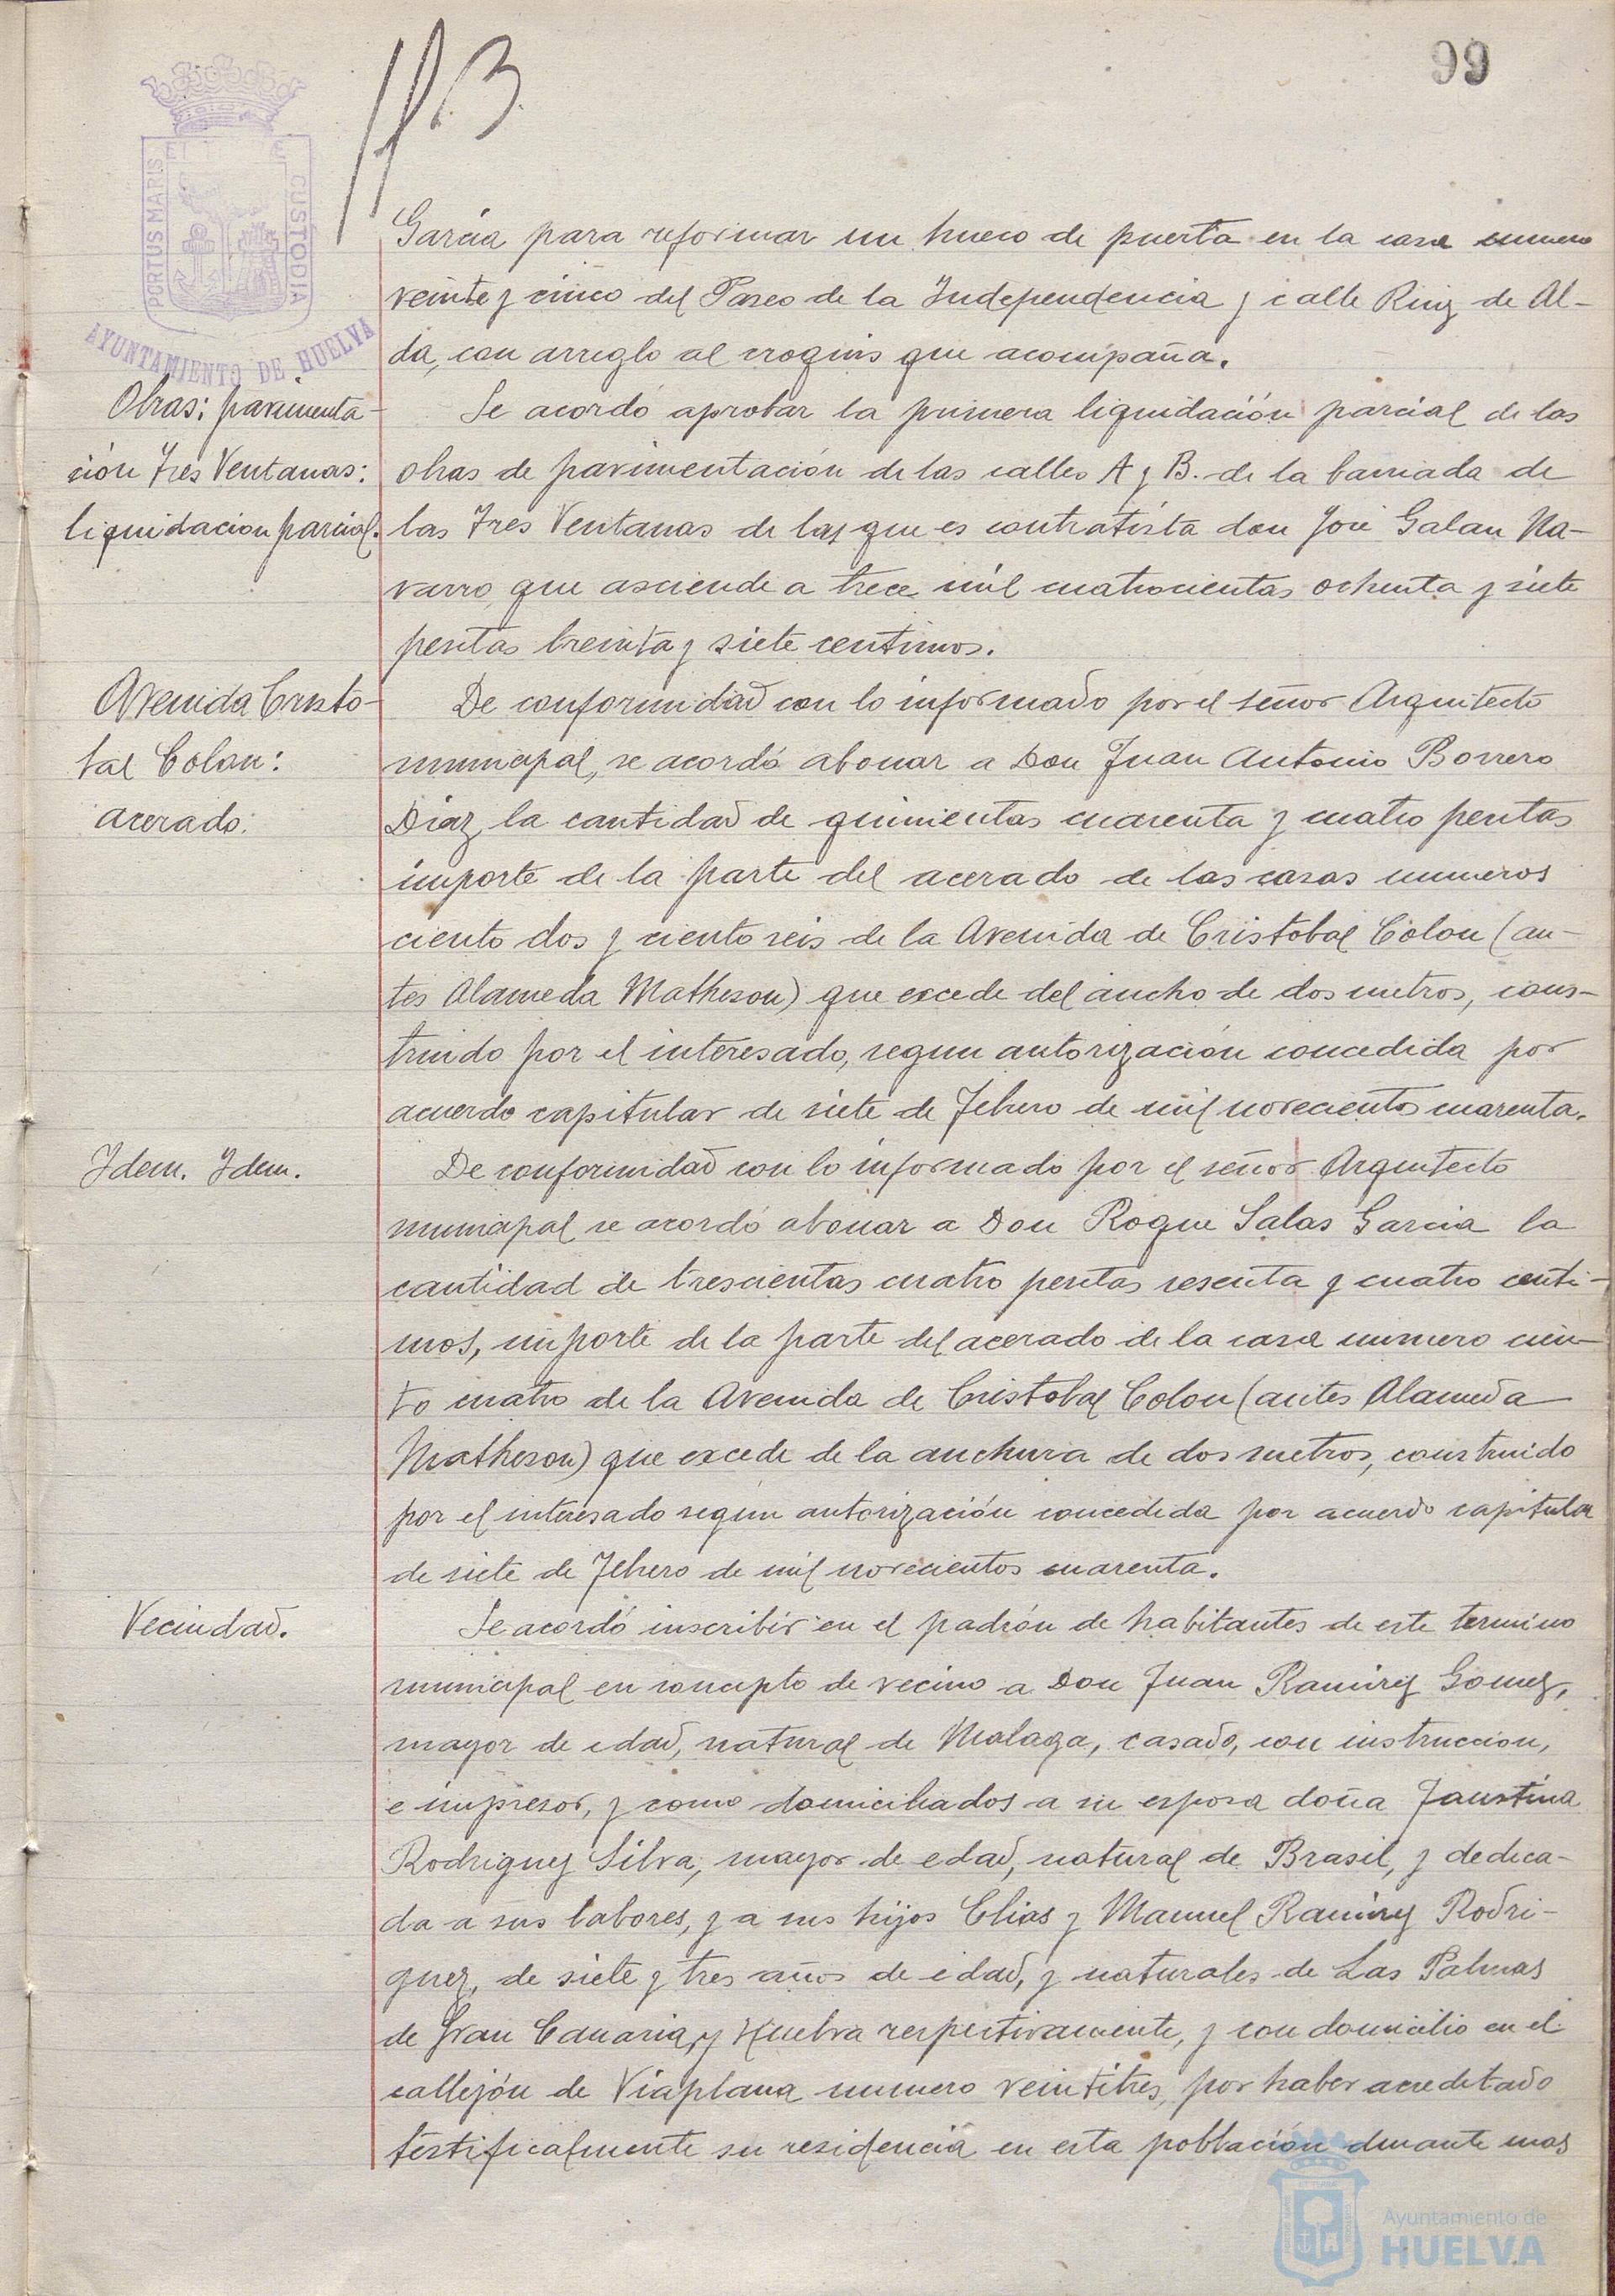 99
PORTUS MARIS ET TERRAE CUSTODIA
AYUNTAMIENTO DE HUELVA
Garcia para reformar un hueco de puerta en la casa numero
veinte y cinco del Paseo de la Independencia y calle Ruiz de Al-
da, con arreglo al croquis que acompaña.
Obras: pavimenta-
ción Tres Ventanas:
liquidacion parcial.
Se acordó aprobar la primera liquidación parcial de las
obras de pavimentación de las calles A y B. de la barriada de
las Tres Ventanas de las que es contratista don José Galan Na-
varro, que asciende a trece mil cuatrocientas ochenta y siete
pesetas treinta y siete centimos.
Avenida Cristo-
bal Colon:
acerado:
De conformidad con lo informado por el señor Arquitecto
municipal, se acordó abonar a Don Juan Antonio Borrero
Diaz, la cantidad de quinientas cuarenta y cuatro pesetas
importe de la parte del acerado de las casas numeros
ciento dos y ciento seis de la Avenida de Cristobal Colon (an-
tes Alameda Matheson) que excede del ancho de dos metros, cons-
truido por el interesado, segun autorización concedida por
acuerdo capitular de siete de Febrero de mil novecientos cuarenta.
Idem. Idem.
De conformidad con lo informado por el señor Arquitecto
municipal se acordó abonar a Don Roque Salas Garcia la
cantidad de trescientas cuatro pesetas sesenta y cuatro centi-
mos, importe de la parte del acerado de la casa numero cien-
to cuatro de la Avenida de Cristobal Colon (antes Alameda
Matheson) que excede de la anchura de dos metros, construido
por el interesado según autorización concedida por acuerdo capitular
de siete de Febrero de mil novecientos cuarenta.
Vecindad.
Se acordó inscribir en el padrón de habitantes de este termino
municipal en concepto de vecino a Don Juan Ramirez Gomez,
mayor de edad, natural de Malaga, casado, con instruccion,
e impresor, y como domiciliados a su esposa doña Faustina
Rodriguez Silva, mayor de edad, natural de Brasil, y dedica-
da a sus labores, y a sus hijos Elias y Manuel Ramirez Rodri-
guez, de siete y tres años de edad, y naturales de Las Palmas
de Gran Canaria, y Huelva respectivamente, y con domicilio en el
callejón de Viaplana numero veintitres, por haber acreditado
testificalmente su residencia en esta población durante mas
Ayuntamiento de
HUELVA